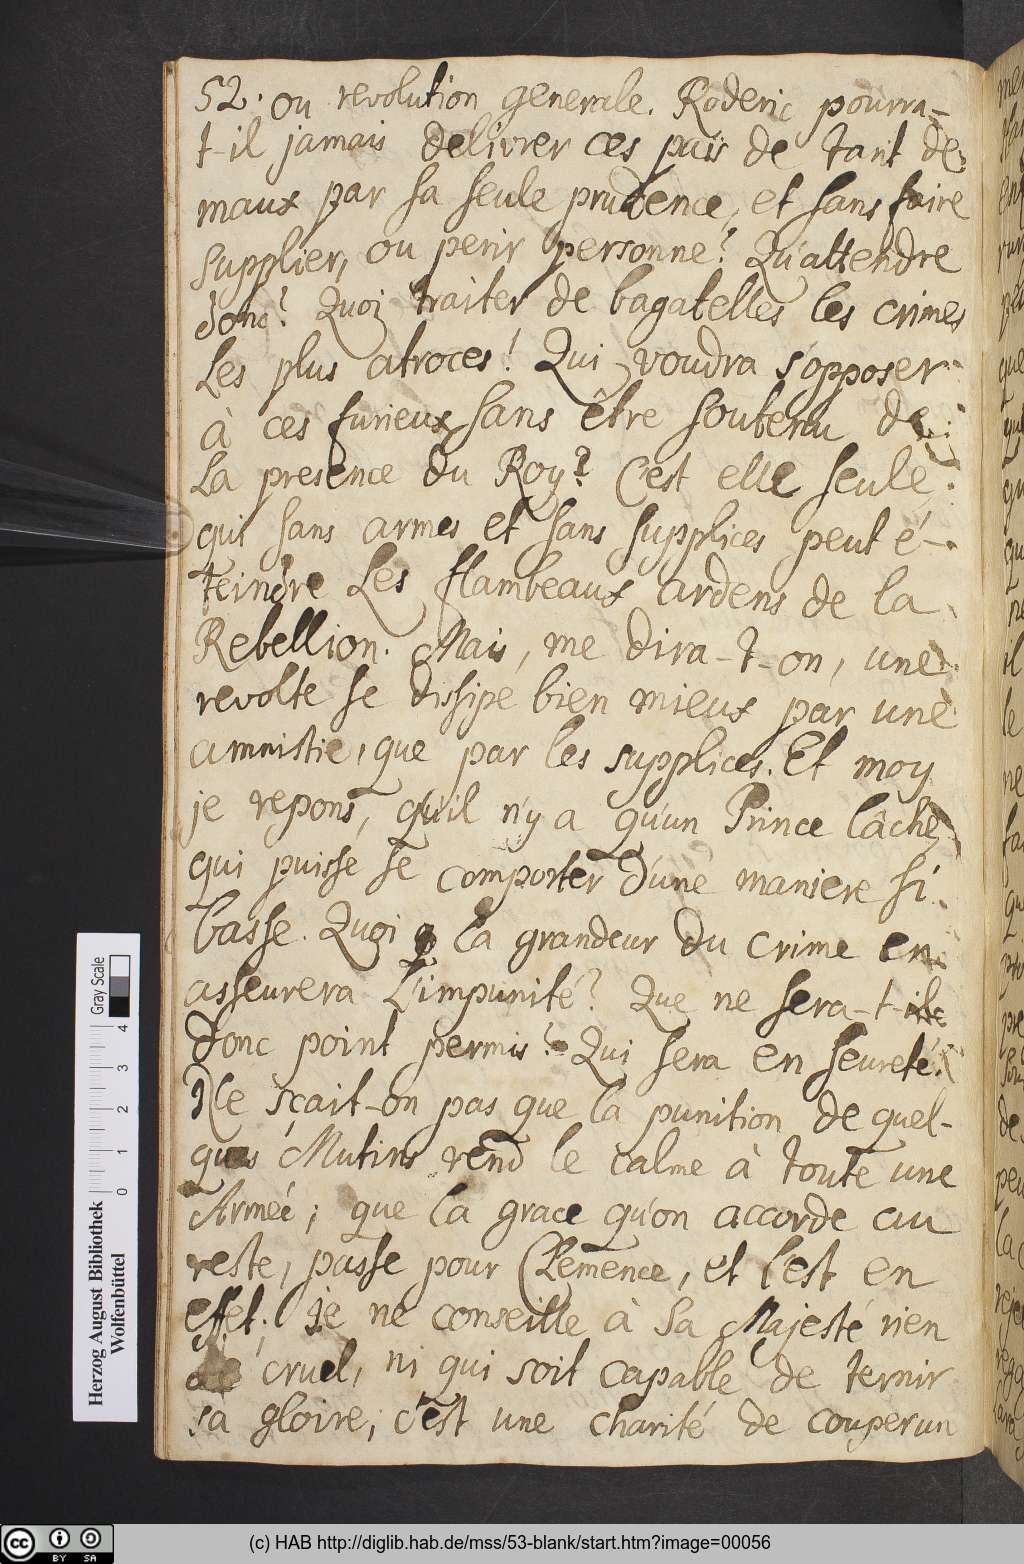 52. ou revolution generale. Roderic pourra-
t-il jamais delivrer ces païs de tant de
maux par sa seule prudence, et sans faire
supplier, ou perir personne? Qu'attendre
donc? Quoi traiter de bagatelles les crimes
les plus atroces! Qui voudra s'opposer
à ces furieux sans être soutenu de
La presence du Roy? C'est elle seule
qui sans armes et sans supplices peut é-
teindre Les flambeaux ardens de la
Rebellion. Mais, me dira-t-on, une
revolte se dissipe bien mieux par une
amnistie, que par les supplices. Et moy
je repons, qu'il n'y a qu'un Prince lâche,
qui puisse se comporter d'une maniere si
basse. Quoi la grandeur du crime en
asseurera L'impunité? Que ne sera-t-il
donc point permis? Qui sera en seureté.
Ne sçait-on pas que la punition de quel-
ques Mutins rend le calme à toute une
Armée; que la grace qu'on accorde au
reste, passe pour Clemence, et l'est en
effet. je ne conseille à Sa Majesté rien
de cruel, ni qui soit capable de ternir
sa gloire; c'est une charité de couper un
Herzog August Bibliothek
Wolfenbüttel
0 1 2 3 4
Gray Scale
cc BY SA
(c) HAB http://diglib.hab.de/mss/53-blank/start.htm?image=00056